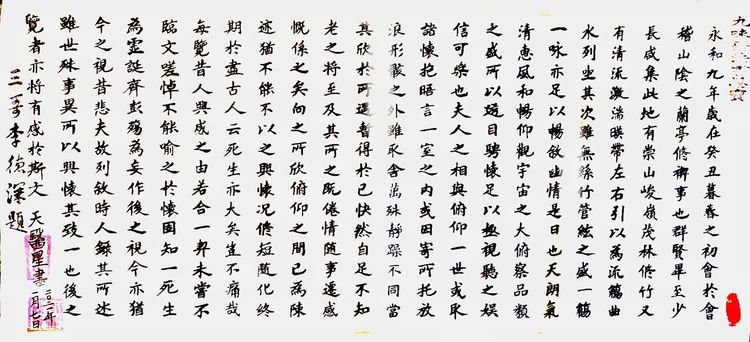 永和九年歲在癸丑暮春之初會於會
稽山陰之蘭亭修禊事也群賢畢至少
長咸集此地有崇山峻嶺茂林修竹又
有清流激湍暎帶左右引以為流觴曲
水列坐其次雖無絲竹管絃之盛一觴
一咏亦足以暢敘幽情是日也天朗氣
清惠風和暢仰觀宇宙之大俯察品類
之盛所以遊目騁懷足以極視聽之娛
信可樂也夫人之相與俯仰一世或取
諸懷抱晤言一室之內或因寄所托放
浪形骸之外雖取舍萬殊靜躁不同當
其欣於所遇暫得於己快然自足不知
老之將至及其所之既倦情隨事遷感
慨係之矣向之所欣俯仰之間已為陳
迹猶不能不以之興懷況修短隨化終
期於盡古人云死生亦大矣豈不痛哉
每覽昔人興感之由若合一契未嘗不
臨文嗟悼不能喻之於懷固知一死生
為虛誕齊彭殤為妄作後之視今亦猶
今之視昔悲夫故列敘時人錄其所述
雖世殊事異所以興懷其致一也後之
覽者亦將有感於斯文 天醫星書
二〇二一年
一月七日
三哥李德深題